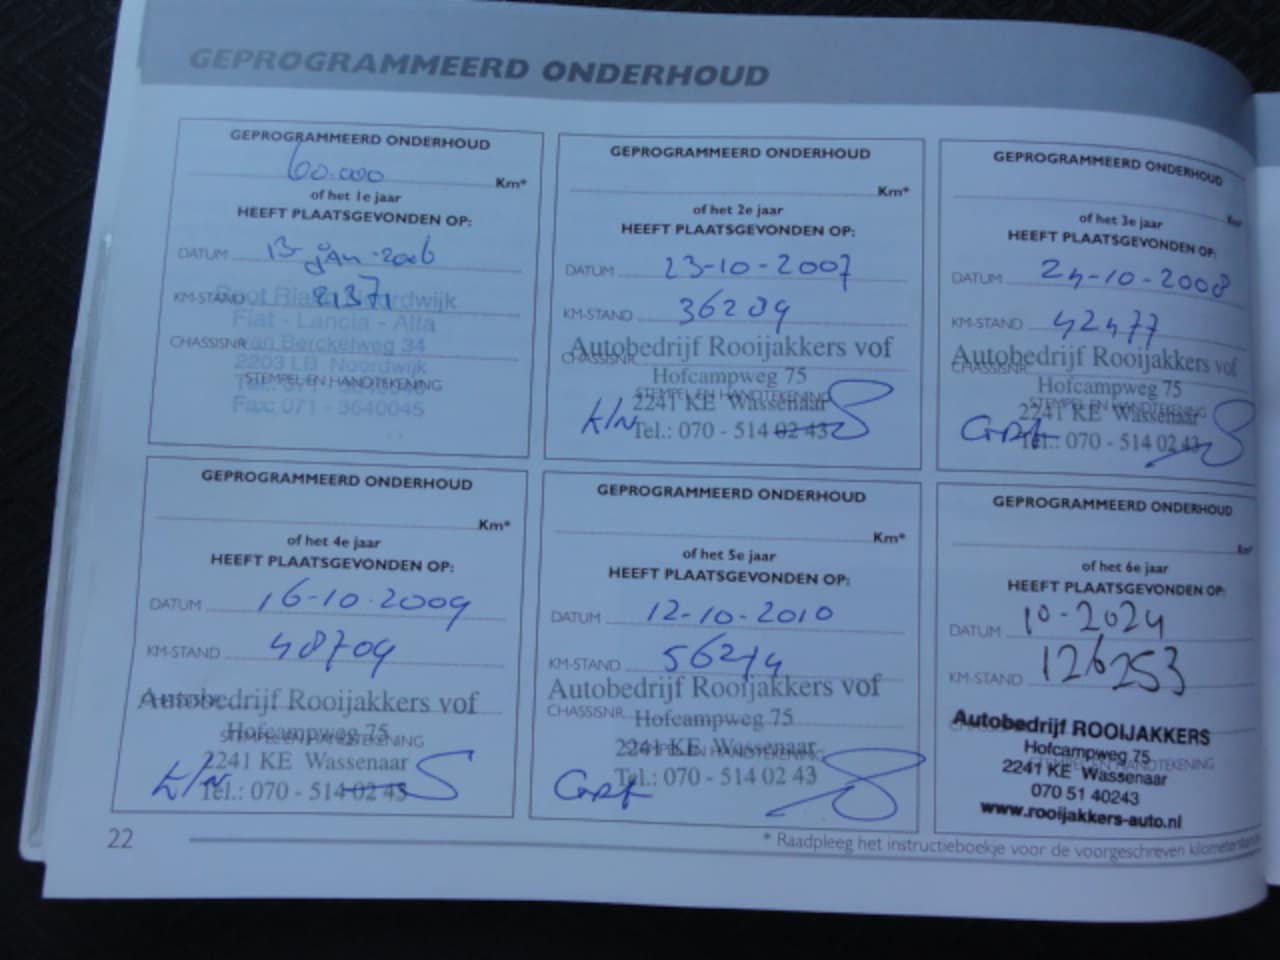 GEPROGRAMMEERD ONDERHOUD
GEPROGRAMMEERD ONDERHOUD
60.000 Km*
of het 1e jaar
HEEFT PLAATSGEVONDEN OP:
DATUM 13-jan-2006
KM-STAND
Fiat - Lancia - Alfa
CHASSISNR van Berckelweg 34
2203 LB Noordwijk
STEMPEL EN HANDTEKENING
Fax: 071 - 3640045
GEPROGRAMMEERD ONDERHOUD
Km*
of het 2e jaar
HEEFT PLAATSGEVONDEN OP:
DATUM 23-10-2007
KM-STAND 36209
Autobedrijf Rooijakkers vof
CHASSISNR.
Hofcampweg 75
STEMPEL EN HANDTEKENING
2241 KE Wassenaar
Tel.: 070 - 514 02 43
GEPROGRAMMEERD ONDERHOUD
Km*
of het 3e jaar
HEEFT PLAATSGEVONDEN OP:
DATUM 24-10-2008
KM-STAND 42477
Autobedrijf Rooijakkers vof
CHASSISNR.
Hofcampweg 75
STEMPEL EN HANDTEKENING
2241 KE Wassenaar
Tel.: 070 - 514 02 43
GEPROGRAMMEERD ONDERHOUD
Km*
of het 4e jaar
HEEFT PLAATSGEVONDEN OP:
DATUM 16-10-2009
KM-STAND 48709
Autobedrijf Rooijakkers vof
Hofcampweg 75
STEMPEL EN HANDTEKENING
2241 KE Wassenaar
Tel.: 070 - 514 02 43
GEPROGRAMMEERD ONDERHOUD
Km*
of het 5e jaar
HEEFT PLAATSGEVONDEN OP:
DATUM 12-10-2010
KM-STAND 56214
Autobedrijf Rooijakkers vof
CHASSISNR. Hofcampweg 75
STEMPEL EN HANDTEKENING
2241 KE Wassenaar
Tel.: 070 - 514 02 43
GEPROGRAMMEERD ONDERHOUD
Km*
of het 6e jaar
HEEFT PLAATSGEVONDEN OP:
DATUM 10-2024
KM-STAND 126253
Autobedrijf ROOIJAKKERS
Hofcampweg 75
STEMPEL EN HANDTEKENING
2241 KE Wassenaar
070 51 40243
www.rooijakkers-auto.nl
22
* Raadpleeg het instructieboekje voor de voorgeschreven